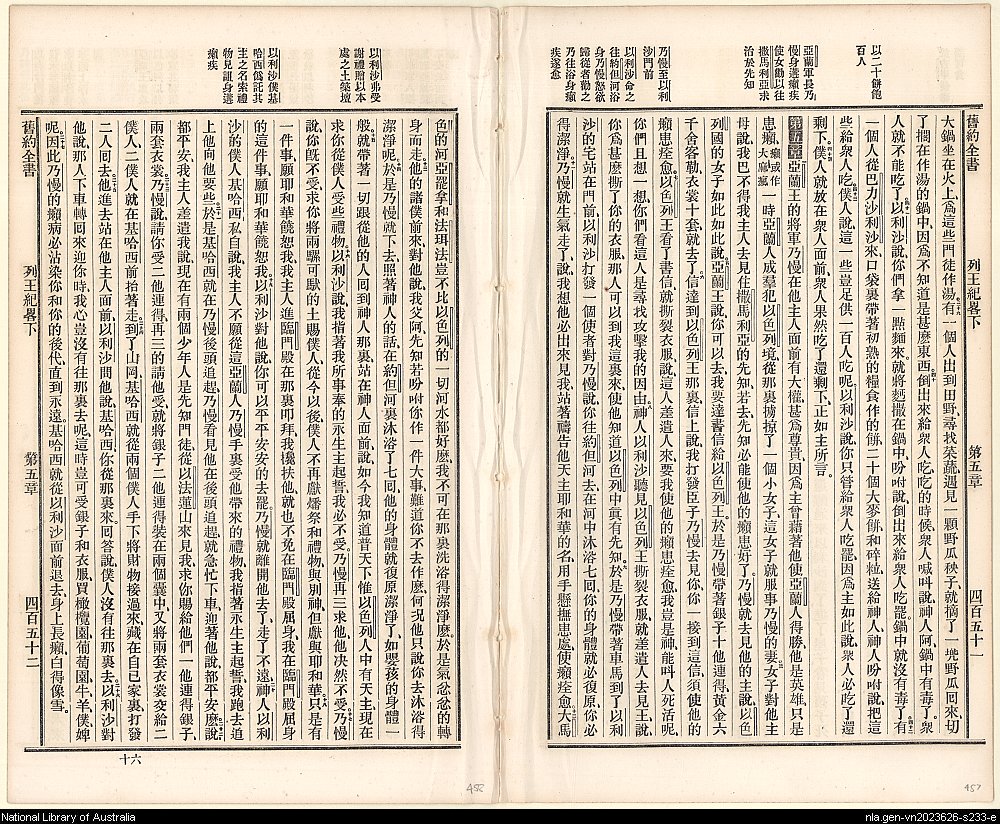 以二十餅飽
百人
亞蘭軍長乃
慢身遘癩疾
使女勸以往
撒馬利亞求
治於先知
乃慢至以利
沙門前
以利沙命之
往約但河浴
身乃慢怒欲
歸從者勸之
乃往浴身癩
疾遂愈
舊約全書 列王紀畧下 第五章 四百五十一
大鍋坐在火上爲這些門徒作湯有一個人出到田野尋找菜蔬遇見一顆野瓜秧子就摘了一兜野瓜囘來切
了擱在作湯的鍋中因爲不知道是甚麼東西倒出來給衆人吃吃的時候衆人喊呌說神人阿鍋中有毒了衆
人就不能吃了以利沙說你們拿一點麵來就將麪撒在鍋中吩咐說倒出來給衆人吃罷鍋中就沒有毒了有
一個人從巴力沙利沙來口袋裏帶著初熟的糧食作的餅二十個大麥餅和碎粒送給神人神人吩咐說把這
些給衆人吃僕人說這一些豈足供一百人吃呢以利沙說你只管給衆人吃罷因爲主如此說衆人必吃了還
剩下僕人就放在衆人面前衆人果然吃了還剩下正如主所言
第五章亞蘭王的將軍乃慢在他主人面前有大權甚爲尊貴因爲主曾藉著他使亞蘭人得勝他是英雄只是
患癩癩或作大痲瘋一時亞蘭人成羣犯以色列境從那裏擄掠了一個小女子這女子就服事乃慢的妻女子對他主
母說我巴不得我主人去見住撒馬利亞的先知若去先知必能使他的癩患好了乃慢就去見他的主說以色
列國的女子如此如此說亞蘭王說你可以去我要達書信給以色列王於是乃慢帶著銀子十他連得黃金六
千舍客勒衣裳十套就去了信達到以色列王那裏信上說我打發臣子乃慢去見你你一接到這信須使他的
癩患痊愈以色列王看了書信就撕裂衣服說這人差遣人來要我使他的癩患痊愈我豈是神能呌人死活呢
你們且想一想你們看這人是尋找攻擊我的因由神人以利沙聽見以色列王撕裂衣服就差遣人去見王說
你爲甚麼撕了你的衣服那人可以到我這裏來使他知道以色列中眞有先知於是乃慢帶著車馬到了以利
沙的宅站在門前以利沙打發一個使者對乃慢說你往約但河去在河中沐浴七囘你的身體就必復原你必
得潔淨乃慢就生氣走了說我想他必出來見我站著禱告他天主耶和華的名用手懸撫患處使癩痊愈大馬
以利沙弗受
謝禮贈以本
處之土築壇
以利沙僕基
哈西僞託其
主之名索禮
物見詛身遘
癩疾
色的河亞罷拿和法珥法豈不比以色列的一切河水都好麽我不可在那裏洗浴得潔淨麽於是氣忿忿的轉
身而走他的諸僕前來對他說我父阿先知若吩咐你作一件大事難道你不去作麽何况他只說你去沐浴得
潔淨呢於是乃慢就下去照著神人的話在約但河裏沐浴了七囘他的身體就復原潔淨了如嬰孩的身體一
般就帶著一切跟從他的人囘到神人那裏站在神人面前說如今我知道普天下惟以色列人中有天主現在
求你從僕人受些禮物以利沙說我指著我所事奉的永生主起誓我必不受乃慢再三求他他决然不受乃慢
說你旣不受求你將兩騾可馱的土賜僕人從今以後僕人不再獻燔祭和禮物與別神但獻與耶和華只是有
一件事願耶和華饒恕我我主人進臨門殿在那裏叩拜我攙扶他就也不免在臨門殿屈身我在臨門殿屈身
的這件事願耶和華饒恕我以利沙對他說你可以平平安安的去罷乃慢就離開他去了走了不遠神人以利
沙的僕人基哈西私自說我主人不願從這亞蘭人乃慢手裏受他帶來的禮物我指著永生主起誓我跑去追
上他向他要些於是基哈西就在乃慢後頭追趕乃慢看見他在後頭追趕就急忙下車迎著他說都平安麽說
都平安我主人差遣我說現在有兩個少年人是先知門徒從以法蓮山來見我求你賜給他們一他連得銀子
兩套衣裳乃慢說請你受二他連得再三的請他受就將銀子二他連得裝在兩個囊中又將兩套衣裳交給二
僕人二僕人就在基哈西前抬著走到了山岡基哈西就從兩個僕人手下將財物接過來藏在自己家裏打發
二人囘去他進去站在他主人面前以利沙問他說基哈西你從那裏來囘答說僕人沒有往那裏去以利沙對
他說那人下車轉囘來迎你時我心豈沒有往那裏去呢這時豈可受銀子和衣服買橄欖園葡萄園牛羊僕婢
呢因此乃慢的癩病必沾染你和你的後代直到永遠基哈西就從以利沙面前退去身上長癩白得像雪
舊約全書 列王紀畧下 第五章 四百五十二
十六
458
457
National Library of Australia
nla.gen-vn2023626-s233-e